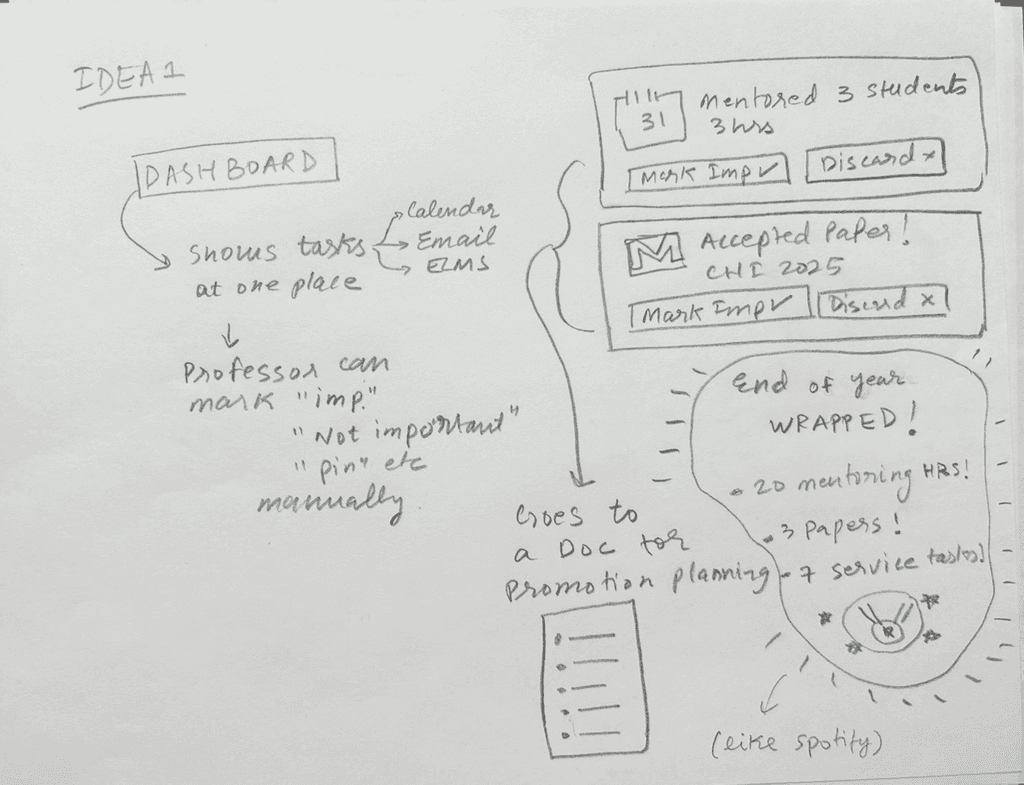 IDEA 1
DASHBOARD
Shows tasks
at one place
Calendar
Email
ELMS
Professor can
mark "imp."
"Not important"
"pin" etc
manually
31
Mentored 3 students
3 hrs
Mark Imp ✓
Discard x
M
Accepted Paper!
CHI 2025
Mark Imp ✓
Discard x
Goes to
a Doc for
promotion planning
End of year
WRAPPED!
• 20 mentoring HRS!
• 3 papers!
• 7 service tasks!
(like spotify)